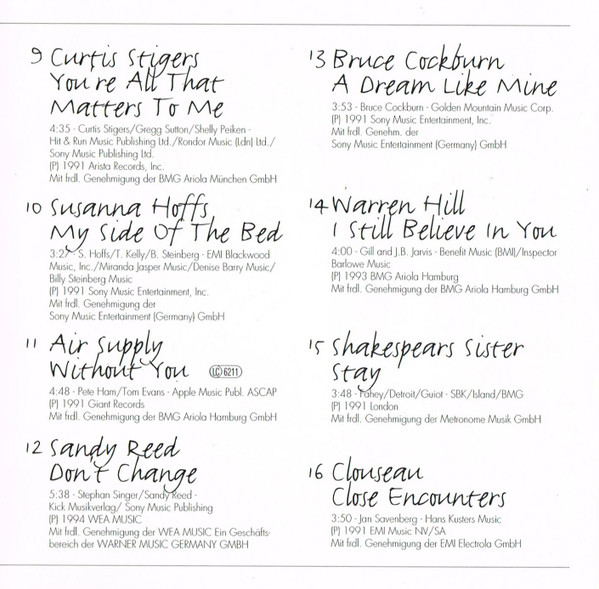 9 Curtis Stigers
You're All That
Matters To Me
4:35 · Curtis Stigers/Gregg Sutton/Shelly Peiken ·
Hit & Run Music Publishing Ltd./Rondor Music (Ldn) Ltd./
Sony Music Publishing Ltd.
(P) 1991 Arista Records, Inc.
Mit frdl. Genehmigung der BMG Ariola München GmbH
10 Susanna Hoffs
My Side Of The Bed
3:27 · S. Hoffs/T. Kelly/B. Steinberg · EMI Blackwood
Music, Inc./Miranda Jasper Music/Denise Barry Music/
Billy Steinberg Music
(P) 1991 Sony Music Entertainment, Inc.
Mit frdl. Genehmigung der
Sony Music Entertainment (Germany) GmbH
11 Air Supply
Without You LC 6211
4:48 · Pete Ham/Tom Evans · Apple Music Publ. ASCAP
(P) 1991 Giant Records
Mit frdl. Genehmigung der BMG Ariola Hamburg GmbH
12 Sandy Reed
Don't Change
5:38 · Stephan Singer/Sandy Reed ·
Kick Musikverlag/ Sony Music Publishing
(P) 1994 WEA MUSIC
Mit frdl. Genehmigung der WEA MUSIC Ein Geschäfts-
bereich der WARNER MUSIC GERMANY GMBH
13 Bruce Cockburn
A Dream Like Mine
3:53 · Bruce Cockburn · Golden Mountain Music Corp.
(P) 1991 Sony Music Entertainment, Inc.
Mit frdl. Genehm. der
Sony Music Entertainment (Germany) GmbH
14 Warren Hill
I Still Believe In You
4:00 · Gill and J.B. Jarvis · Benefit Music (BMI)/Inspector
Barlowe Music
(P) 1993 BMG Ariola Hamburg
Mit frdl. Genehmigung der BMG Ariola Hamburg GmbH
15 Shakespears Sister
Stay
3:48 · Fahey/Detroit/Guiot · SBK/Island/BMG
(P) 1991 London
Mit frdl. Genehmigung der Metronome Musik GmbH
16 Clouseau
Close Encounters
3:50 · Jan Savenberg · Hans Kusters Music
(P) 1991 EMI Music NV/SA
Mit frdl. Genehmigung der EMI Electrola GmbH